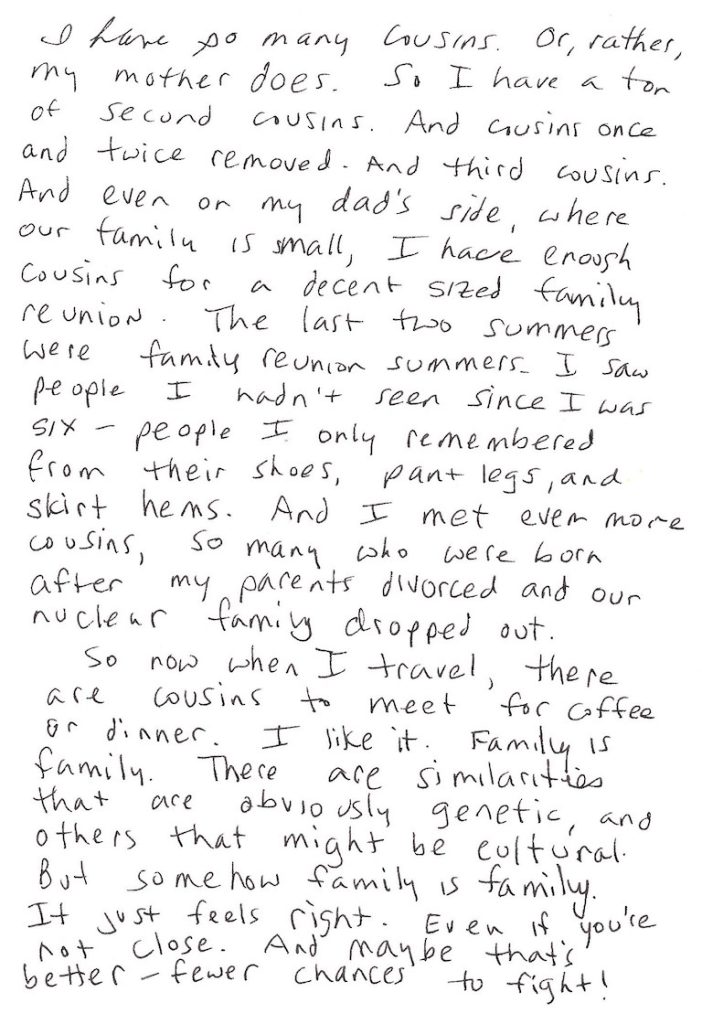 I have so many cousins. Or, rather,
my mother does. So I have a ton
of second cousins. And cousins once
and twice removed. And third cousins.
And even on my dad's side, where
our family is small, I have enough
cousins for a decent sized family
reunion. The last two summers
were family reunion summers. I saw
people I hadn't seen since I was
six - people I only remembered
from their shoes, pant legs, and
skirt hems. And I met even more
cousins, so many who were born
after my parents divorced and our
nuclear family dropped out.
So now when I travel, there
are cousins to meet for coffee
or dinner. I like it. Family is
family. There are similarities
that are obviously genetic, and
others that might be cultural.
But somehow family is family.
It just feels right. Even if you're
not close. And maybe that's
better - fewer chances to fight!